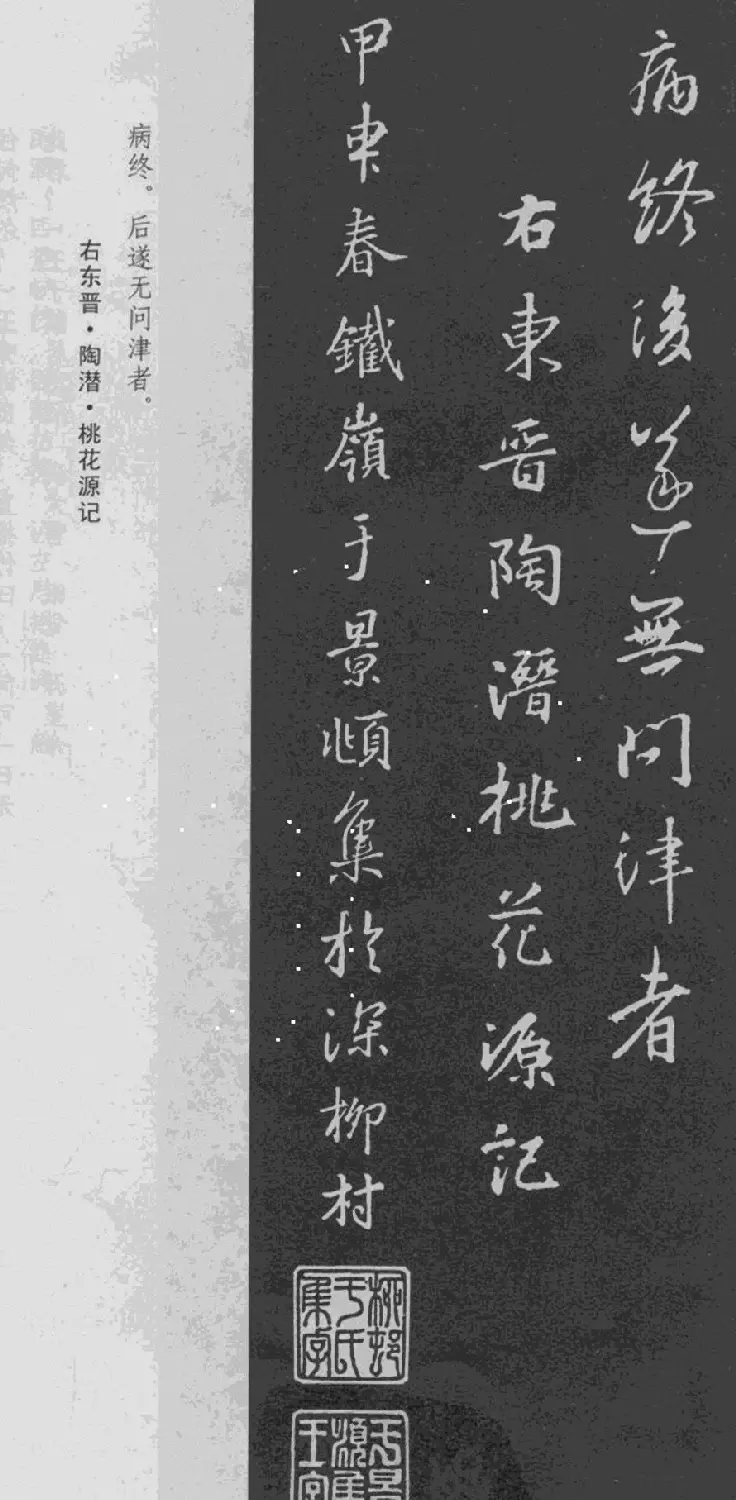 病終後遂無問津者
右東晋陶潛桃花源記
甲申春鐵嶺于景頫集於深柳村
柳邨于氏集字
病终。后遂无问津者。
右东晋·陶潜·桃花源记